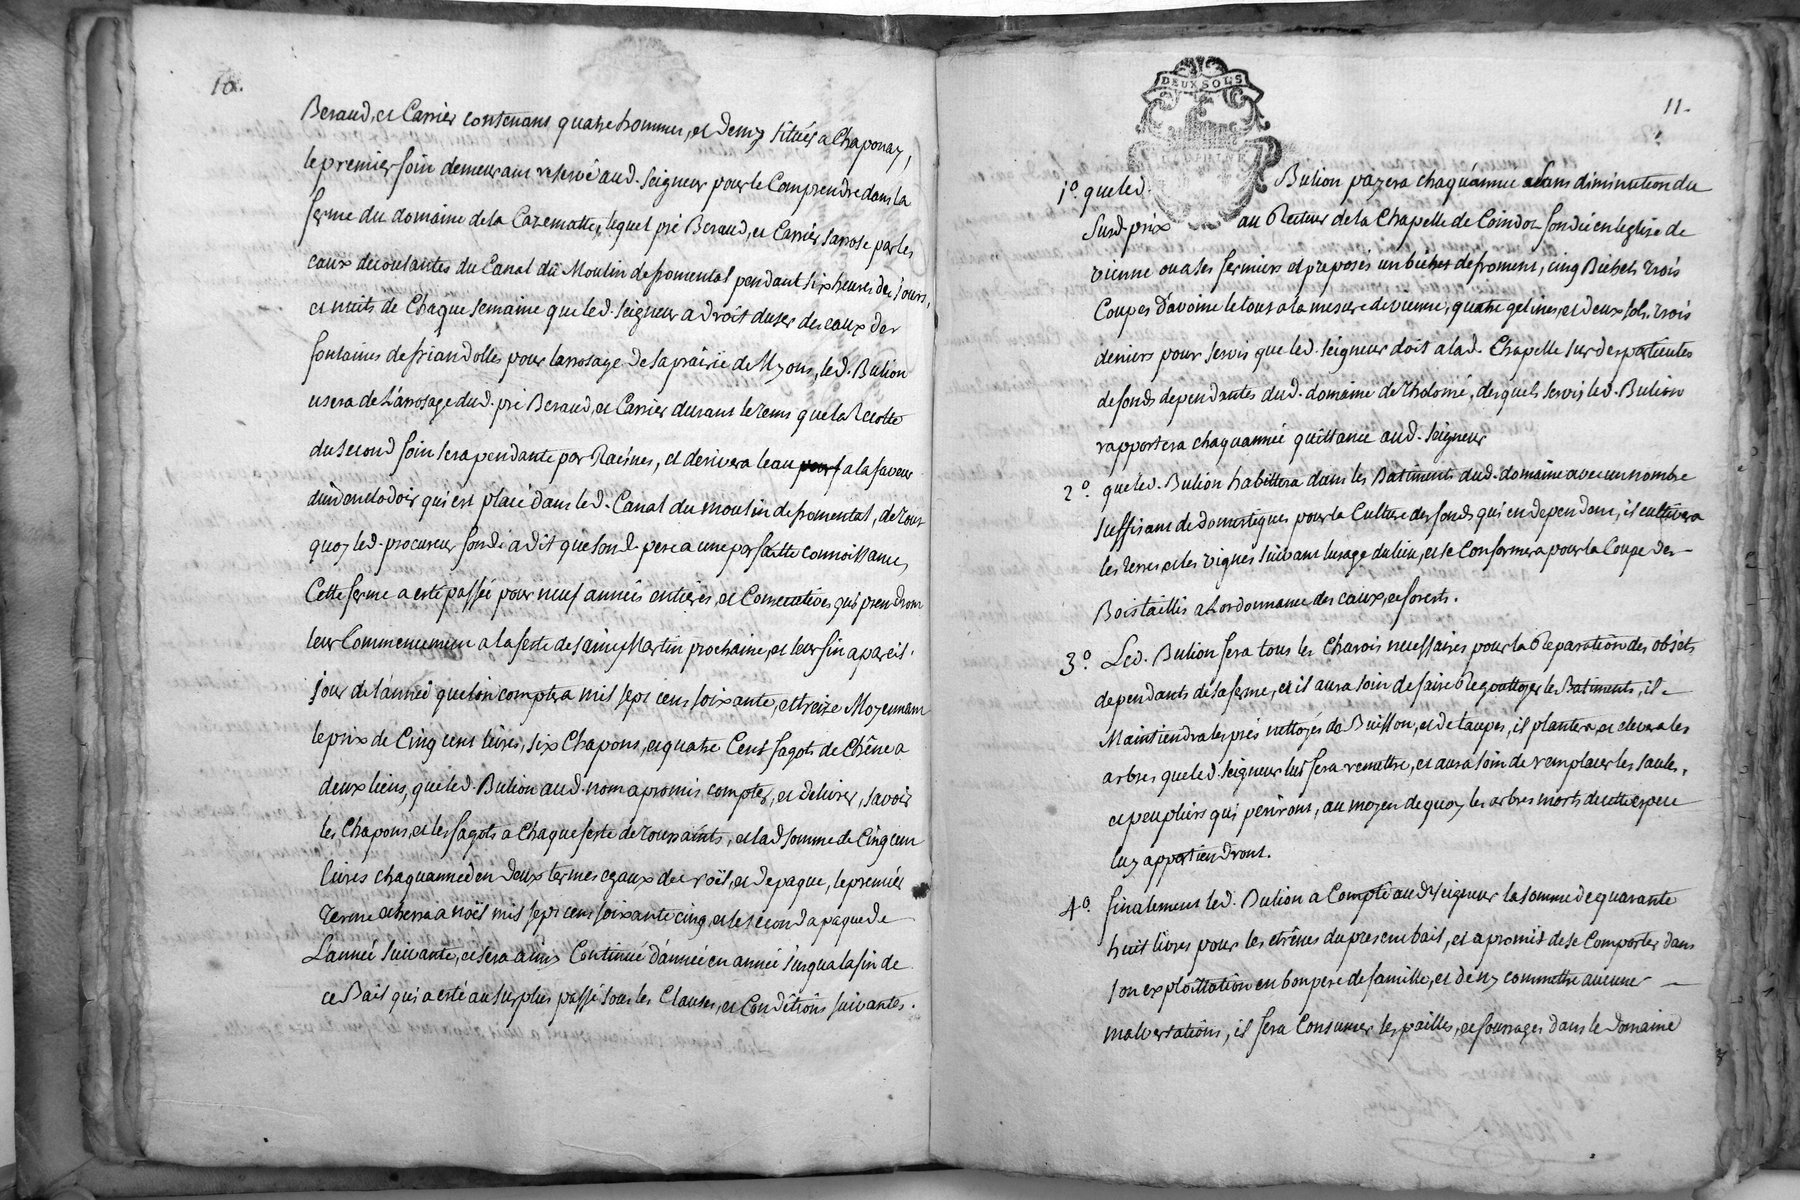 10.
Beraud, et Carrier contenant quatre hommes, et demy situés a Chaponay,
le premier foin demeurant reservé aud. seigneur pour le Comprendre dans la
ferme du domaine de la Cazematte, lequel pré Beraud, et Carrier sarrose par les
eaux decoulantes du Canal du Moulin de fromental pendant six heures des jours,
et nuits de Chaque semaine que led. seigneur a droit duser des eaux des
fontaines de friandolles pour larrosage de sa prairie de Myons, led. Bulion
usera de L'arrosage dud. pré Beraud, et Carrier durant le tems que la Recotte
du second foin sera pendante par Racines, et derivera leau a la faveur
dun qui est placé dans led. Canal du moulin de fromental, de tout
quoy led. procureur fondé a dit que sond. pere a une parfaitte connoissance,
Cette ferme a esté passée pour neuf années entieres, et Consecutives qui prendront
leur Commencement a la feste de saint Martin prochaine, et leur fin a pareil
jour de l'année que lon comptera mil sept cent soixante, et treize Moyennant
le prix de Cinq cent livres, six Chapons, et quatre Cent fagots de Chêne a
deux liens, que led. Bulion aud. nom a promis compter, et delivrer, savoir
les Chapons, et les fagots a Chaque feste de toussaints, et lad somme de Cinq cent
livres chaquannée en deux termes egaux de noël, et de paque, le premier
terme a noël mil sept cent soixante cinq, et le second a paque de
L'année suivante, et sera ainsy Continué d'année en année jusqua la fin de
ce Bail qui a esté au surplus passé sous les Clauses, et Conditions suivantes.
DEUX SOLS
DAUPHINE
11.
1º. que led. Bulion payera chaquannée sans diminution du
susd. prix au Recteur de la Chapelle de Coindoz fondée en leglise de
vienne ou a ses fermiers et preposés un bichet de froment, cinq Bichets trois
Coupes d'avoine le tout a la mesure de vienne, quatre gelines, et deux sols trois
deniers pour servis que led. seigneur doit a lad. Chapelle sur des partientes
de fonds dependantes dud. domaine de Tholomé, desquels servis led. Bulion
rapportera chaquannée quittance aud. seigneur
2º. que led. Bulion habittera dans les Batiments dud. domaine avec un nombre
suffisant de domestiques pour la Culture des fonds qui en dependent, il cultivera
les terres, et les vignes suivant lusage du lieu, et se Conformera pour la Coupe des
Bois taillis a Lordonnance des eaux, et forests.
3º. Led. Bulion fera tous les Charois necessaires pour la Reparation des objets
dependants de sa ferme, et il aura soin de faire Regouttoyer les Batiments, il
Maintiendra les prés nettoyés de Buisson, et de taupes, il plantera, et elevera les
arbres que led. seigneur lui fera remettre, et aura soin de remplacer les saules,
et peupliers qui periront, au moyen de quoy les arbres morts de cette espece
luy appartiendront.
4º. finalement led. Bulion a Compté aud. seigneur la somme de quarante
huit livres pour les etrênes du present bail, et a promis de se Comporter dans
son exploittation en bon pere de famille, et de ny commettre aucune
malversations, il fera Consumer les pailles, et fourrages dans le Domaine